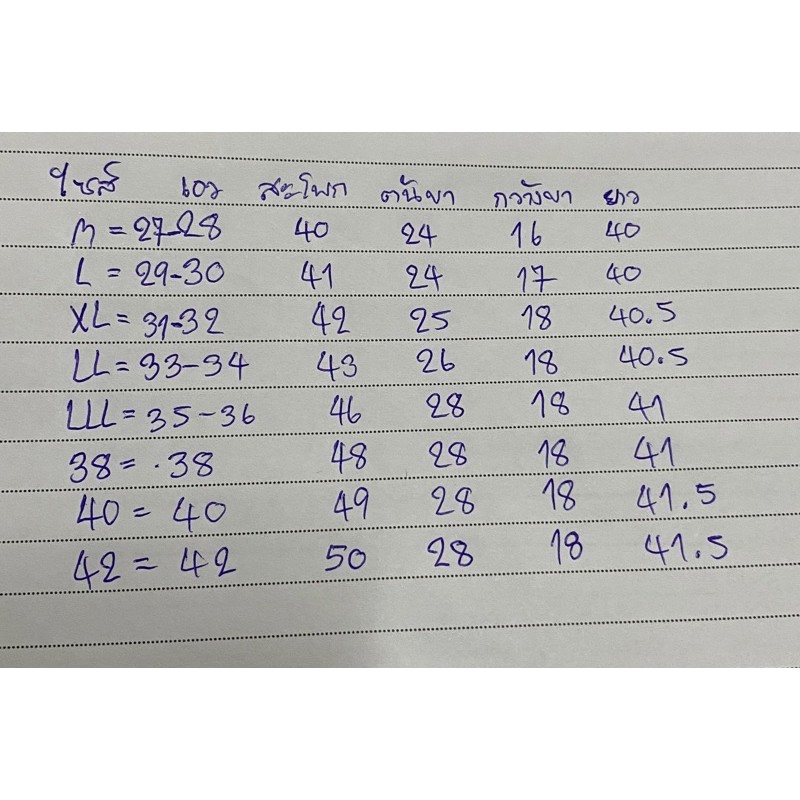 ไซส์ เอว สะโพก ต้นขา กว้างขา ยาว
M = 27-28 40 24 16 40
L = 29-30 41 24 17 40
XL = 31-32 42 25 18 40.5
LL = 33-34 43 26 18 40.5
LLL = 35-36 46 28 18 41
38 = .38 48 28 18 41
40 = 40 49 28 18 41.5
42 = 42 50 28 18 41.5